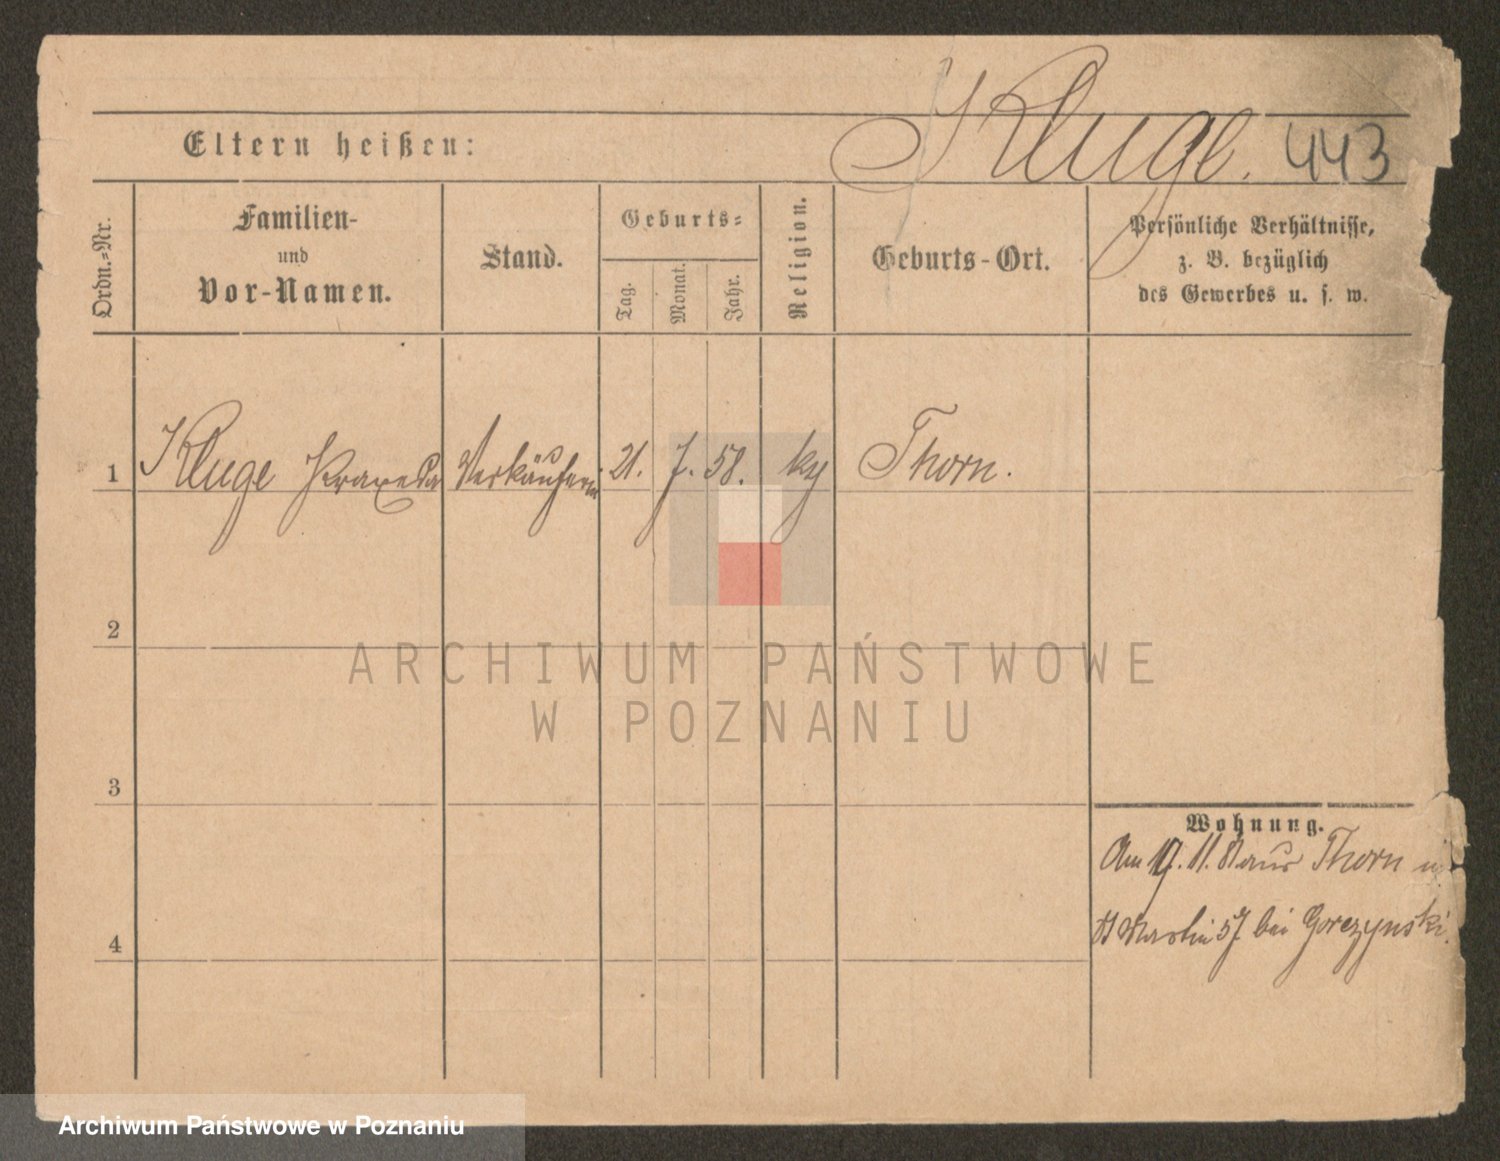 Kluge. 443
Eltern heißen:
Ordn.-Nr.
Familien-
und
Vor-Namen.
Stand.
Geburts-
Tag.
Monat.
Jahr.
Religion.
Geburts-Ort.
Persönliche Verhältnisse,
z. B. bezüglich
des Gewerbes u. s. w.
1 Kluge Praxeda Verkäuferin 21. 7. 58. kg Thorn.
2
3
4
Wohnung.
Am 19. 11. aus Thorn
St Martin 57 bei Gorczynski.
ARCHIWUM PAŃSTWOWE
W POZNANIU
Archiwum Państwowe w Poznaniu